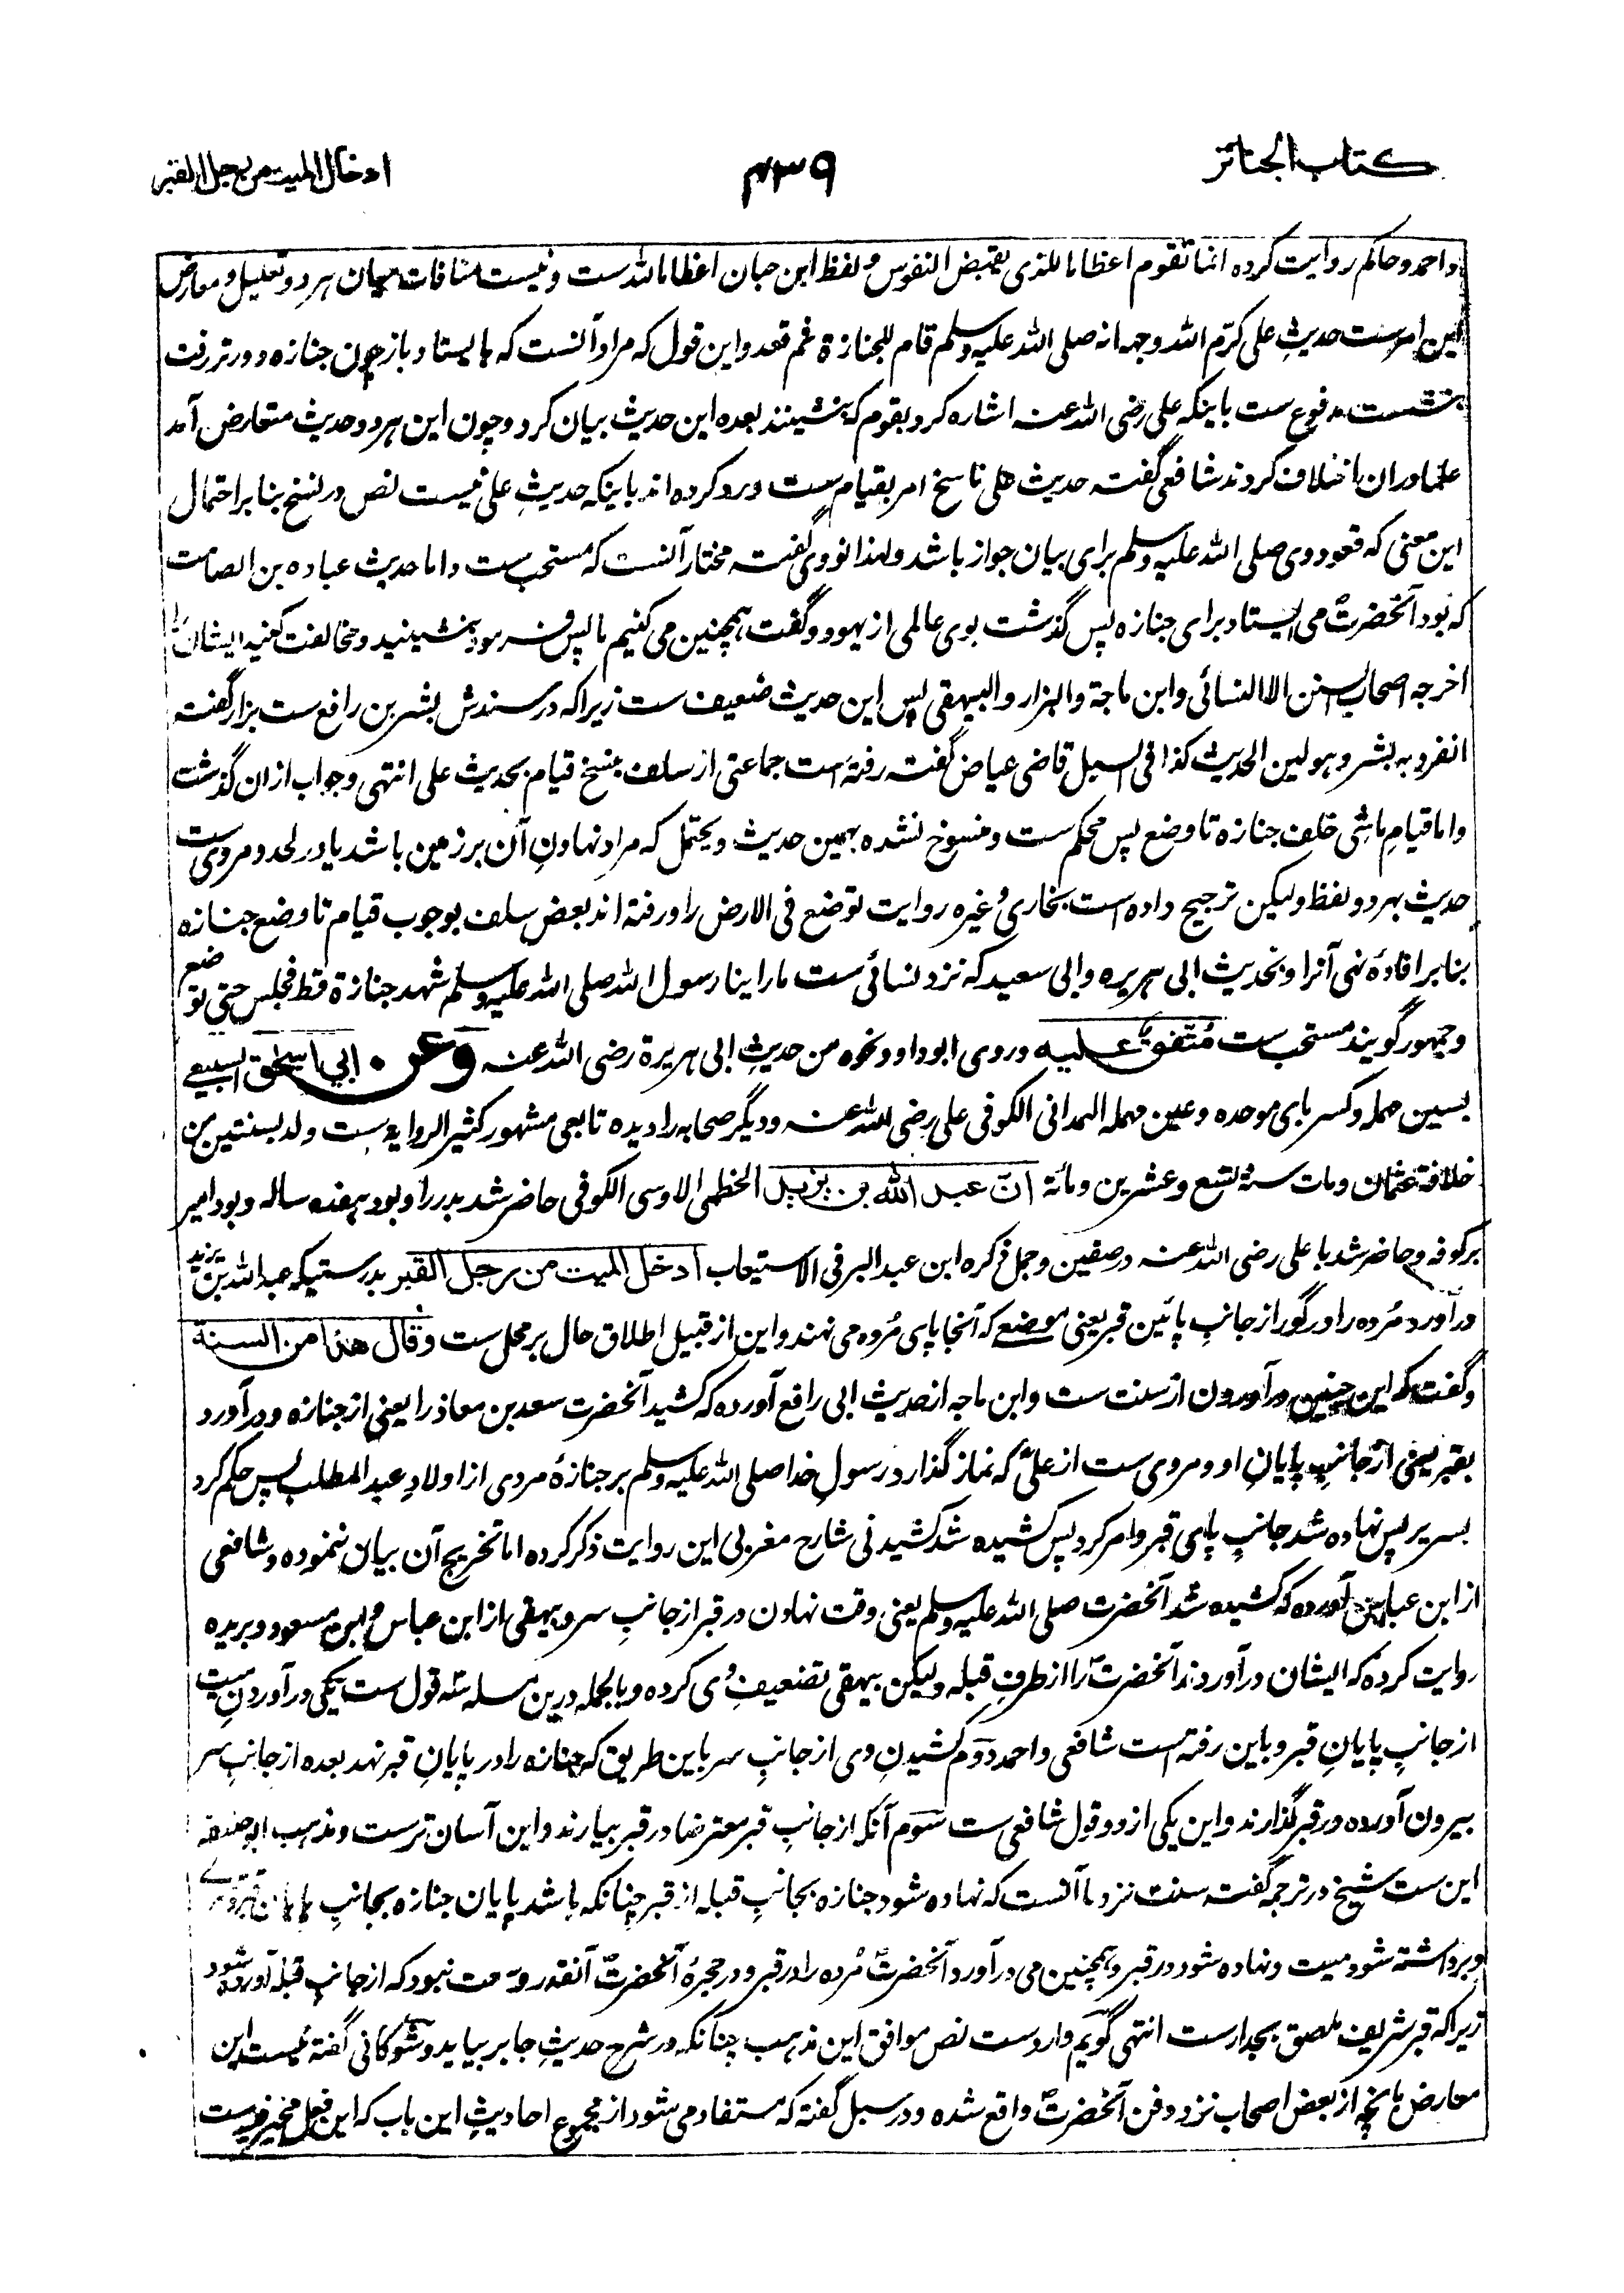 كتاب الجنائز
۴۳۹
ادخال الميت من رجل القبر
واحمد وحاكم روايت كرده انما تقوم اعظاما للذی يقبض النفوس ولفظ ابن حبان اعظاما لله ست ونیست منافات میان هر دو تعلیل ومعارض
این امرست حدیثِ علی کرّم الله وجهه انه صلی الله علیه وسلم قام للجنازة ثم قعد واین قول که مراد آنست که بایستاد باز چون جنازه دورتر رفت
بنشست مدفوع ست باینکه علی رضی الله عنه اشاره کرد بقوم که بنشینند بعده این حدیث بیان کرد وچون این هر دو حدیث متعارض آمد
علما دران اختلاف کردند شافعی گفته حدیث علی ناسخ امر بقیام ست ورد کرده اند باینکه حدیثِ علی نیست نص در نسخ بنا بر احتمال
این معنی که قعود وی صلی الله علیه وسلم برای بیان جواز باشد ولهذا نووی گفته مختار آنست که مستحب ست واما حدیث عباده بن الصامت
که بود آنحضرتؐ می ایستاد برای جنازه پس گذشت بوی عالمی از یهود وگفت همچنین می کنیم ما پس فرمود بنشینید ومخالفت کنید ایشان را
اخرجه اصحاب السنن الا النسائی وابن ماجة والبزار والبیهقی پس این حدیث ضعیف ست زیراکه در سندش بشر بن رافع ست بزار گفته
انفرد به بشر وهو لین الحدیث کذا فی السبل قاضی عیاض گفته رفته است جماعتی از سلف بنسخ قیام بحدیث علی انتهی وجواب ازان گذشت
واما قیامِ ماشِی خلف جنازه تا وضع پس محکم ست ومنسوخ نشده بهمین حدیث ویحتمل که مرادِ نهادنِ آن بر زمین باشد یا در لحد ومروی ست
حدیث بهر دو لفظ ولیکن ترجیح داده است بخاری وغیره روایت توضع فی الارض را ورفته اند بعض سلف بوجوب قیام تا وضع جنازه
بنا بر افادهٔ نهی آنرا وبحدیث ابی هریره وابی سعید که نزد نسائی ست ما راینا رسول الله صلی الله علیه وسلم شهد جنازة قط فجلس حتی توضع
وجمهور گویند مستحب ست مُتفق علیه وروی ابو داود نحوه من حدیثِ ابی هریرة رضی الله عنه وَعن ابی اسحق السبیعی
بسین مهمله وکسر بای موحده وعین مهمله الهمدانی الکوفی علی رضی الله عنه ودیگر صحابه را دیده تابعی مشهور کثیر الروایه ست ولد بسنتین من
خلافة عثمان ومات سنة تسع وعشرین ومأته انّ عبد الله بن یزید الخطمی الاوسی الکوفی حاضر شد بدر را وبود هفده ساله وبود امیر
بر کوفه وحاضر شد با علی رضی الله عنه در صفین وجمل ذکره ابن عبد البر فی الاستیعاب ادخل المیت من رجل القبر بدرستیکه عبد الله بن یزید
در آورد مُرده را در گور از جانبِ پائین قبر یعنی موضع که آنجا پای مُرده می نهند واین از قبیل اطلاق حال بر محل ست وقال هذا من السنة
وگفت که این چنین در آوردن از سنت ست وابن ماجه از حدیث ابی رافع آورده که کشید آنحضرت سعد بن معاذ را یعنی از جنازه ودر آورد
بقبر یعنی از جانبِ پایانِ او ومروی ست از علیؓ که نماز گذارد رسولِ خدا صلی الله علیه وسلم بر جنازهٔ مردی از اولادِ عبد المطلب پس حکم کرد
بسریر پس نهاده شد جانبِ پای قبر وامر کرد پس کشیده شد کشیدنی شارح مغربی این روایت ذکر کرده اما تخریج آن بیان ننموده وشافعی
از ابن عباس آورده که کشیده شد آنحضرت صلی الله علیه وسلم یعنی وقت نهادن در قبر از جانبِ سر وبیهقی از ابن عباس وابن مسعود وبریده
روایت کرده که ایشان در آوردند آنحضرتؐ را از طرفِ قبله ولیکن بیهقی تضعیفِ وی کرده وبالجمله درین مسله سه قول ست یکی در آوردنِ میت
از جانبِ پایانِ قبر وباین رفته است شافعی واحمد دوّم کشیدنِ وی از جانبِ سر باین طریق که جنازه را در پایانِ قبر نهد بعده از جانبِ سر
بیرون آورده در قبر گذارند واین یکی از دو قولِ شافعی ست سوّم آنکه از جانبِ قبر معترضا در قبر بیارند واین آسان ترست ومذهب ابو حنیفه
این ست شیخ در ترجمه گفته سنت نزد ما آنست که نهاده شود جنازه بجانبِ قبله از قبر چنانکه باشد پایان جنازه بجانبِ پایان قبر
وبرداشته شود میت ونهاده شود در قبر وهمچنین می در آورد آنحضرتؐ مُرده را در قبر ودر حجرهٔ آنحضرتؐ آنقدر وسعت نبود که از جانبِ قبله آورده شود
زیراکه قبر شریف ملصق بجدارست انتهی گویم واردست نص موافق این مذهب چنانکه در شرح حدیثِ جابر بیاید وشوکانی گفته نیست این
معارض بانچه از بعض اصحاب نزد دفن آنحضرتؐ واقع شده ودر سبل گفته که مستفاد می شود از مجموع احادیثِ این باب که این فعل مخیر فیه ست